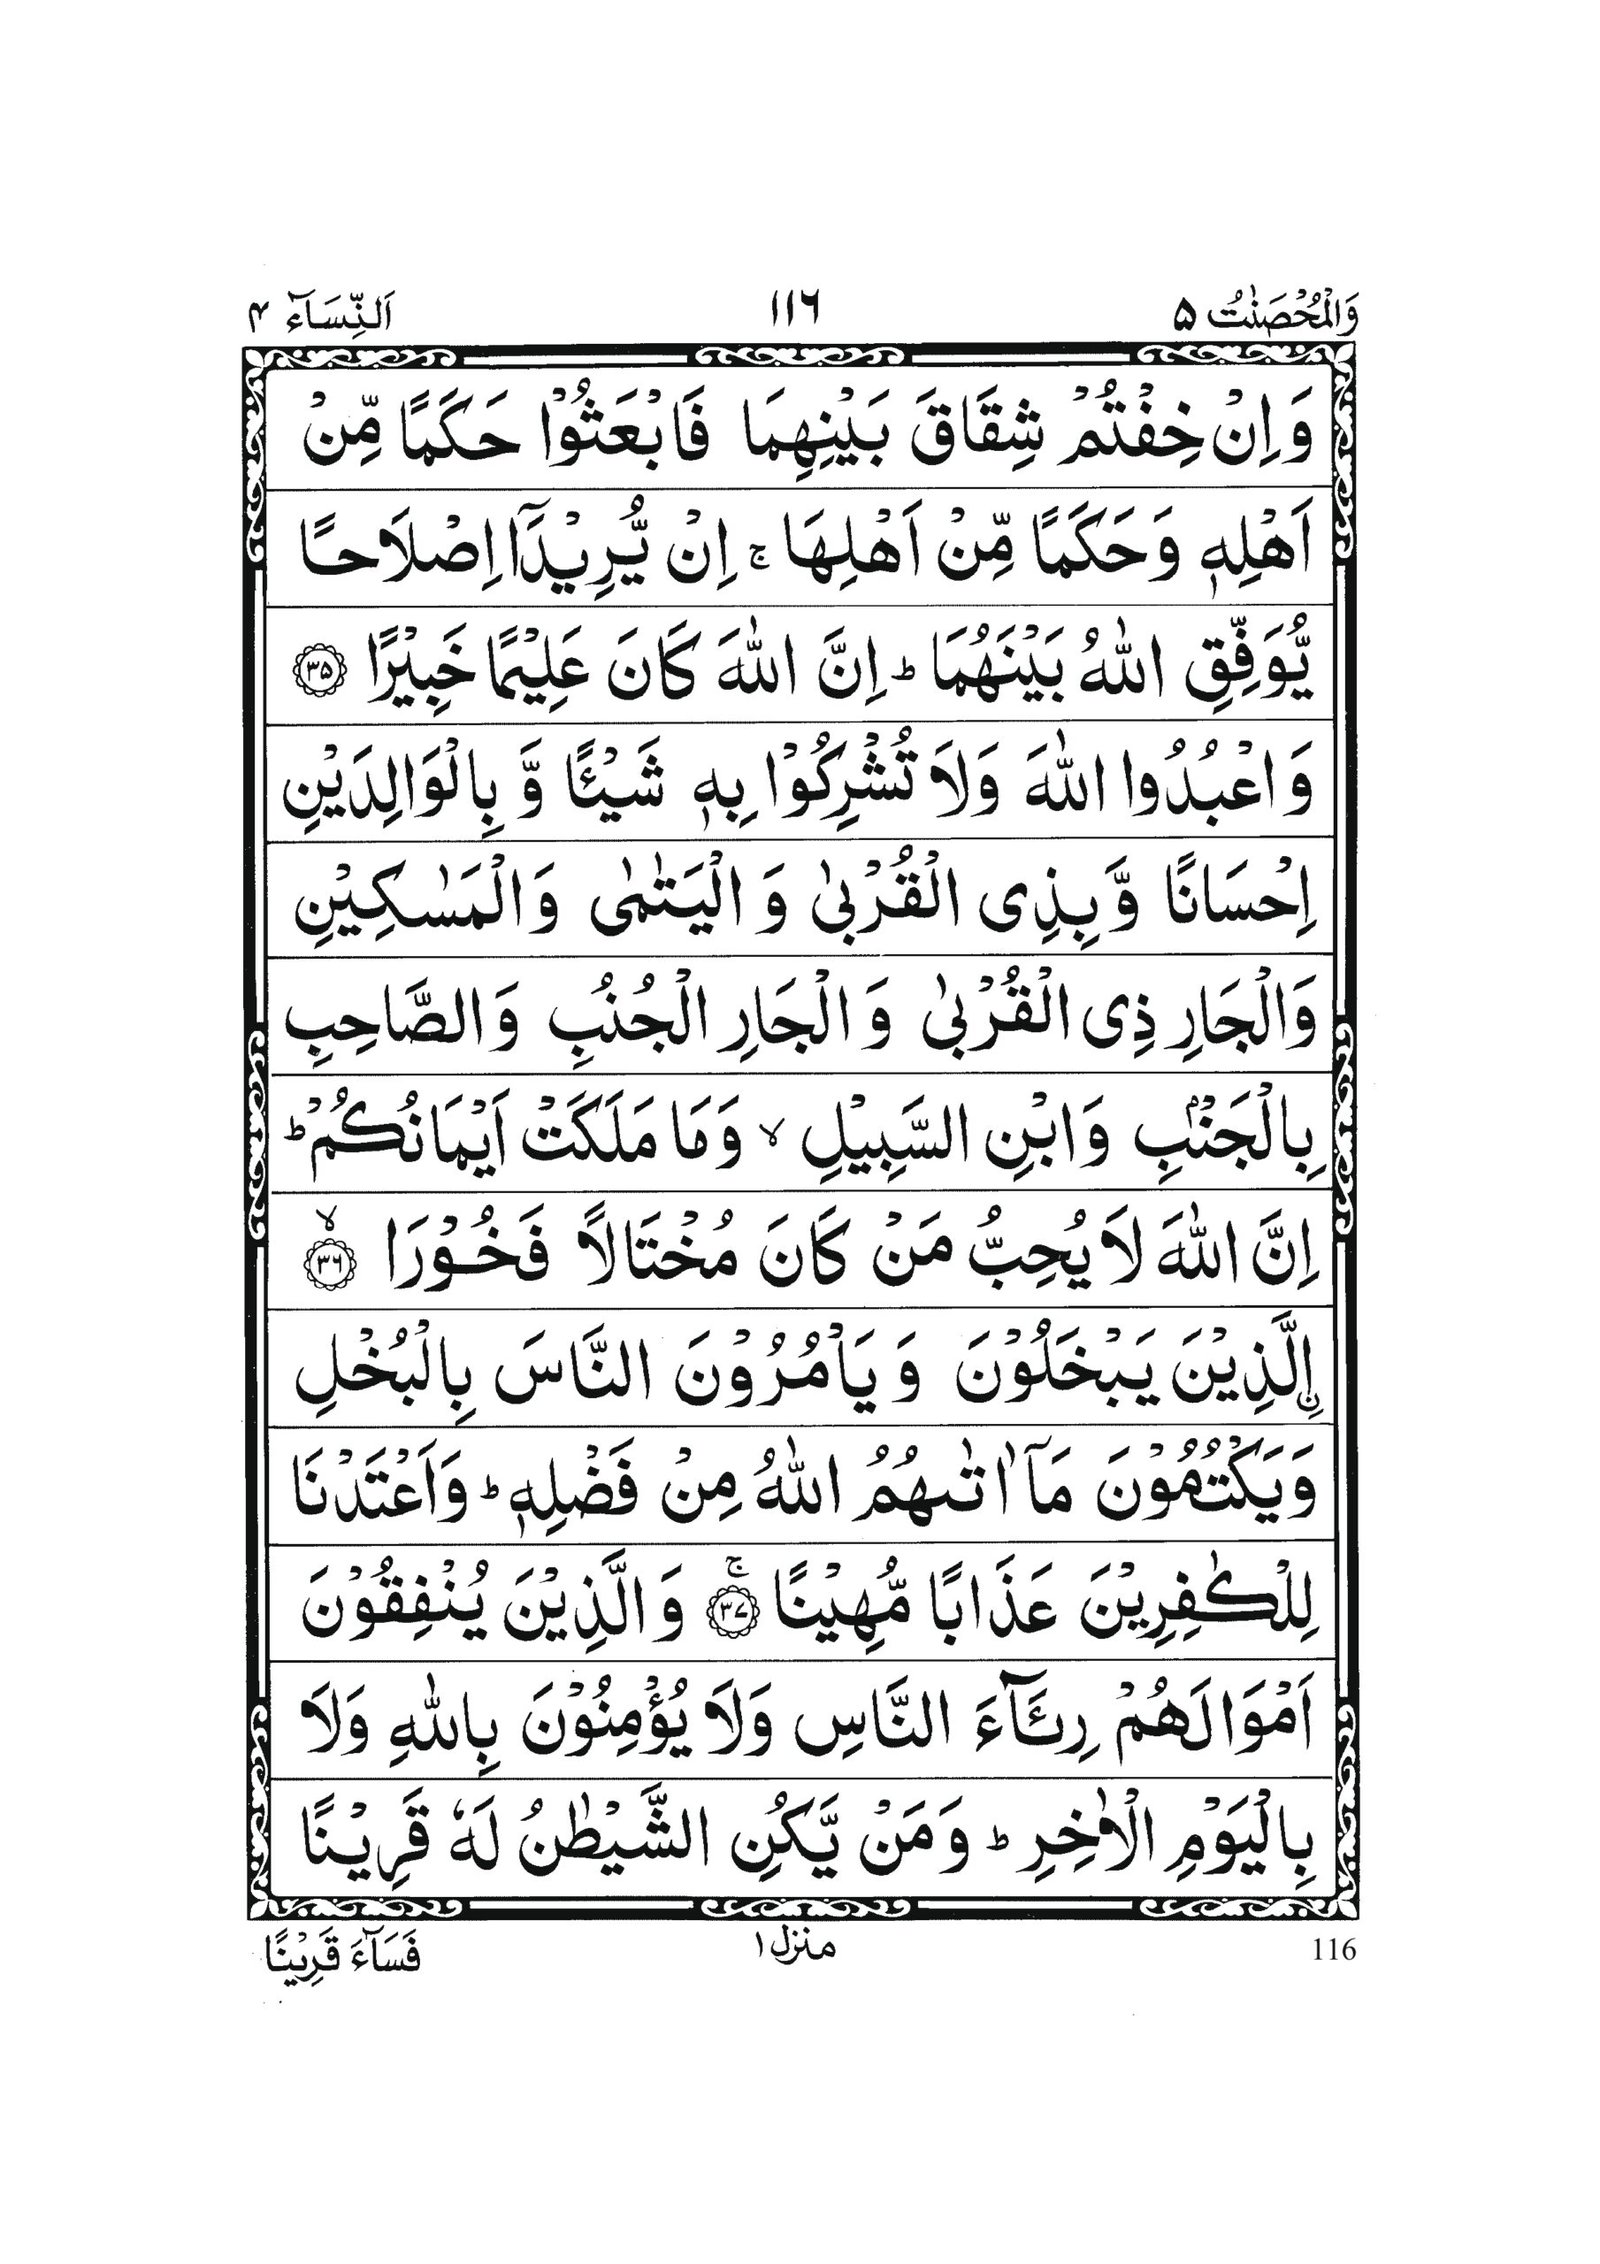 وَالْمُحْصَنٰتُ ۵ ١١٦ اَلنِّسَآء ۴
وَاِنْ خِفْتُمْ شِقَاقَ بَيْنِهِمَا فَابْعَثُوْا حَكَمًا مِّنْ
اَهْلِهٖ وَحَكَمًا مِّنْ اَهْلِهَا ۚ اِنْ يُّرِيْدَآ اِصْلَاحًا
يُّوَفِّقِ اللّٰهُ بَيْنَهُمَا ؕ اِنَّ اللّٰهَ كَانَ عَلِيْمًا خَبِيْرًا ﴿۳۵﴾
وَاعْبُدُوا اللّٰهَ وَلَا تُشْرِكُوْا بِهٖ شَيْـًٔا وَّ بِالْوَالِدَيْنِ
اِحْسَانًا وَّ بِذِى الْقُرْبٰى وَ الْيَتٰمٰى وَ الْمَسٰكِيْنِ
وَالْجَارِ ذِى الْقُرْبٰى وَ الْجَارِ الْجُنُبِ وَ الصَّاحِبِ
بِالْجَنْۢبِ وَ ابْنِ السَّبِيْلِ ۙ وَمَا مَلَكَتْ اَيْمَانُكُمْ ؕ
اِنَّ اللّٰهَ لَا يُحِبُّ مَنْ كَانَ مُخْتَالًا فَخُوْرَا ۙ ﴿۳۶﴾
اۨلَّذِيْنَ يَبْخَلُوْنَ وَ يَاْمُرُوْنَ النَّاسَ بِالْبُخْلِ
وَيَكْتُمُوْنَ مَآ اٰتٰٮهُمُ اللّٰهُ مِنْ فَضْلِهٖ ؕ وَاَعْتَدْنَا
لِلْكٰفِرِيْنَ عَذَابًا مُّهِيْنًا ۚ ﴿۳۷﴾ وَ الَّذِيْنَ يُنْفِقُوْنَ
اَمْوَالَهُمْ رِئَآءَ النَّاسِ وَلَا يُؤْمِنُوْنَ بِاللّٰهِ وَلَا
بِالْيَوْمِ الْاٰخِرِ ؕ وَمَنْ يَّكُنِ الشَّيْطٰنُ لَهٗ قَرِيْنًا
116 منزل ١ فَسَآءَ قَرِيْنًا